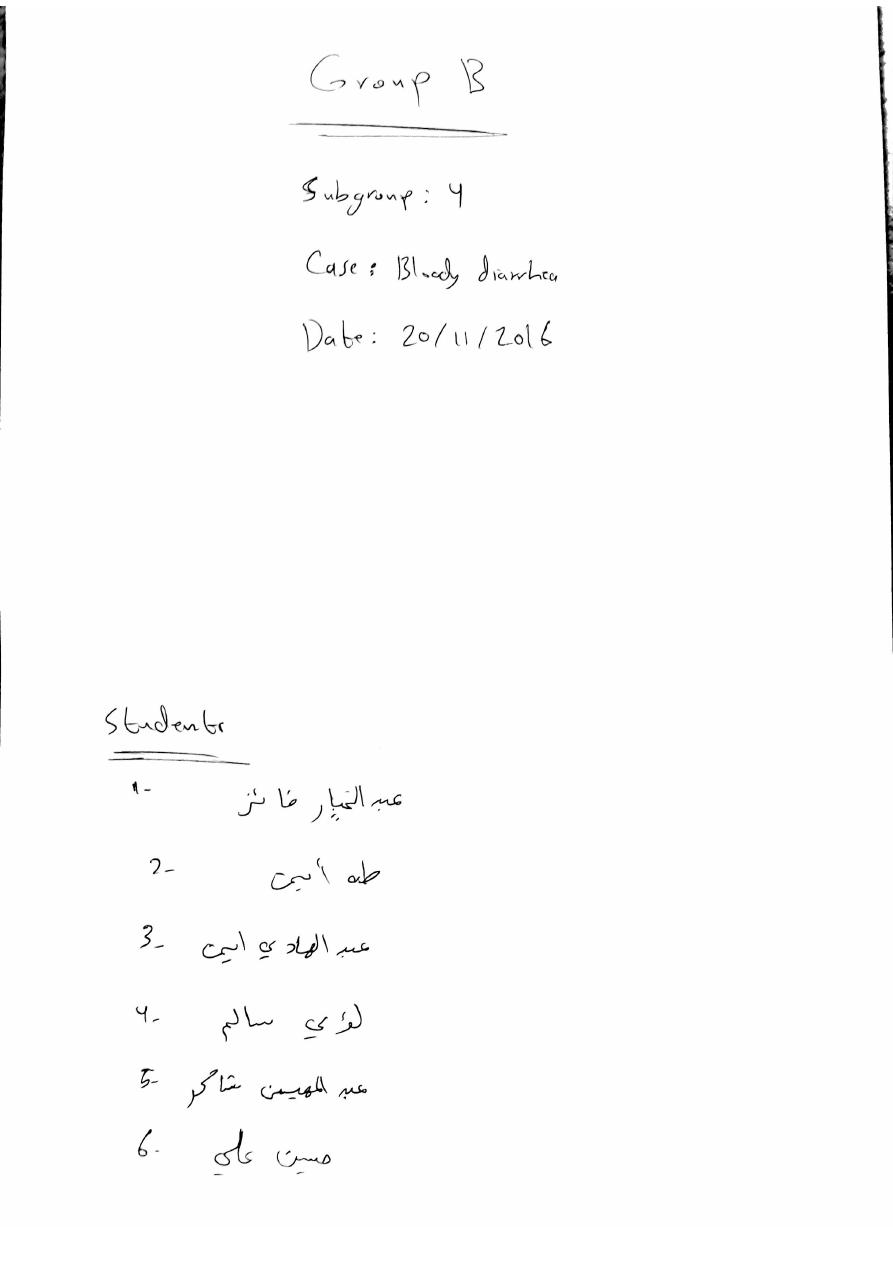 Group B
Subgroup: 4
Case: Bloody diarrhea
Date: 20/11/2016
Students
1- عبد الجبار فائز
2- طه أيمن
3- عبد الهادي ايمن
4- لؤي سالم
5- عبد المهيمن شاكر
6- حسين علي